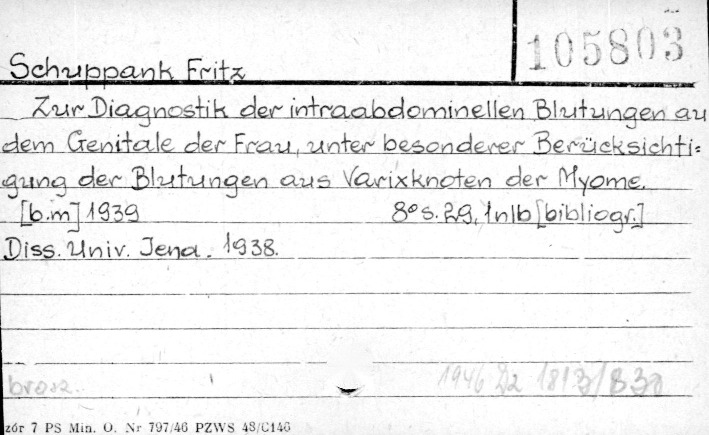 105803
Schuppank Fritz
Zur Diagnostik der intraabdominellen Blutungen au
dem Genitale der Frau, unter besonderer Berücksichti=
gung der Blutungen aus Varixknoten der Myome.
[b.m] 1939 8° s. 29, 1nlb [bibliogr.]
Diss. Univ. Jena. 1938.
brosz. 1946
zór 7 PS Min. O. Nr 797/46 PZWS 48/C146